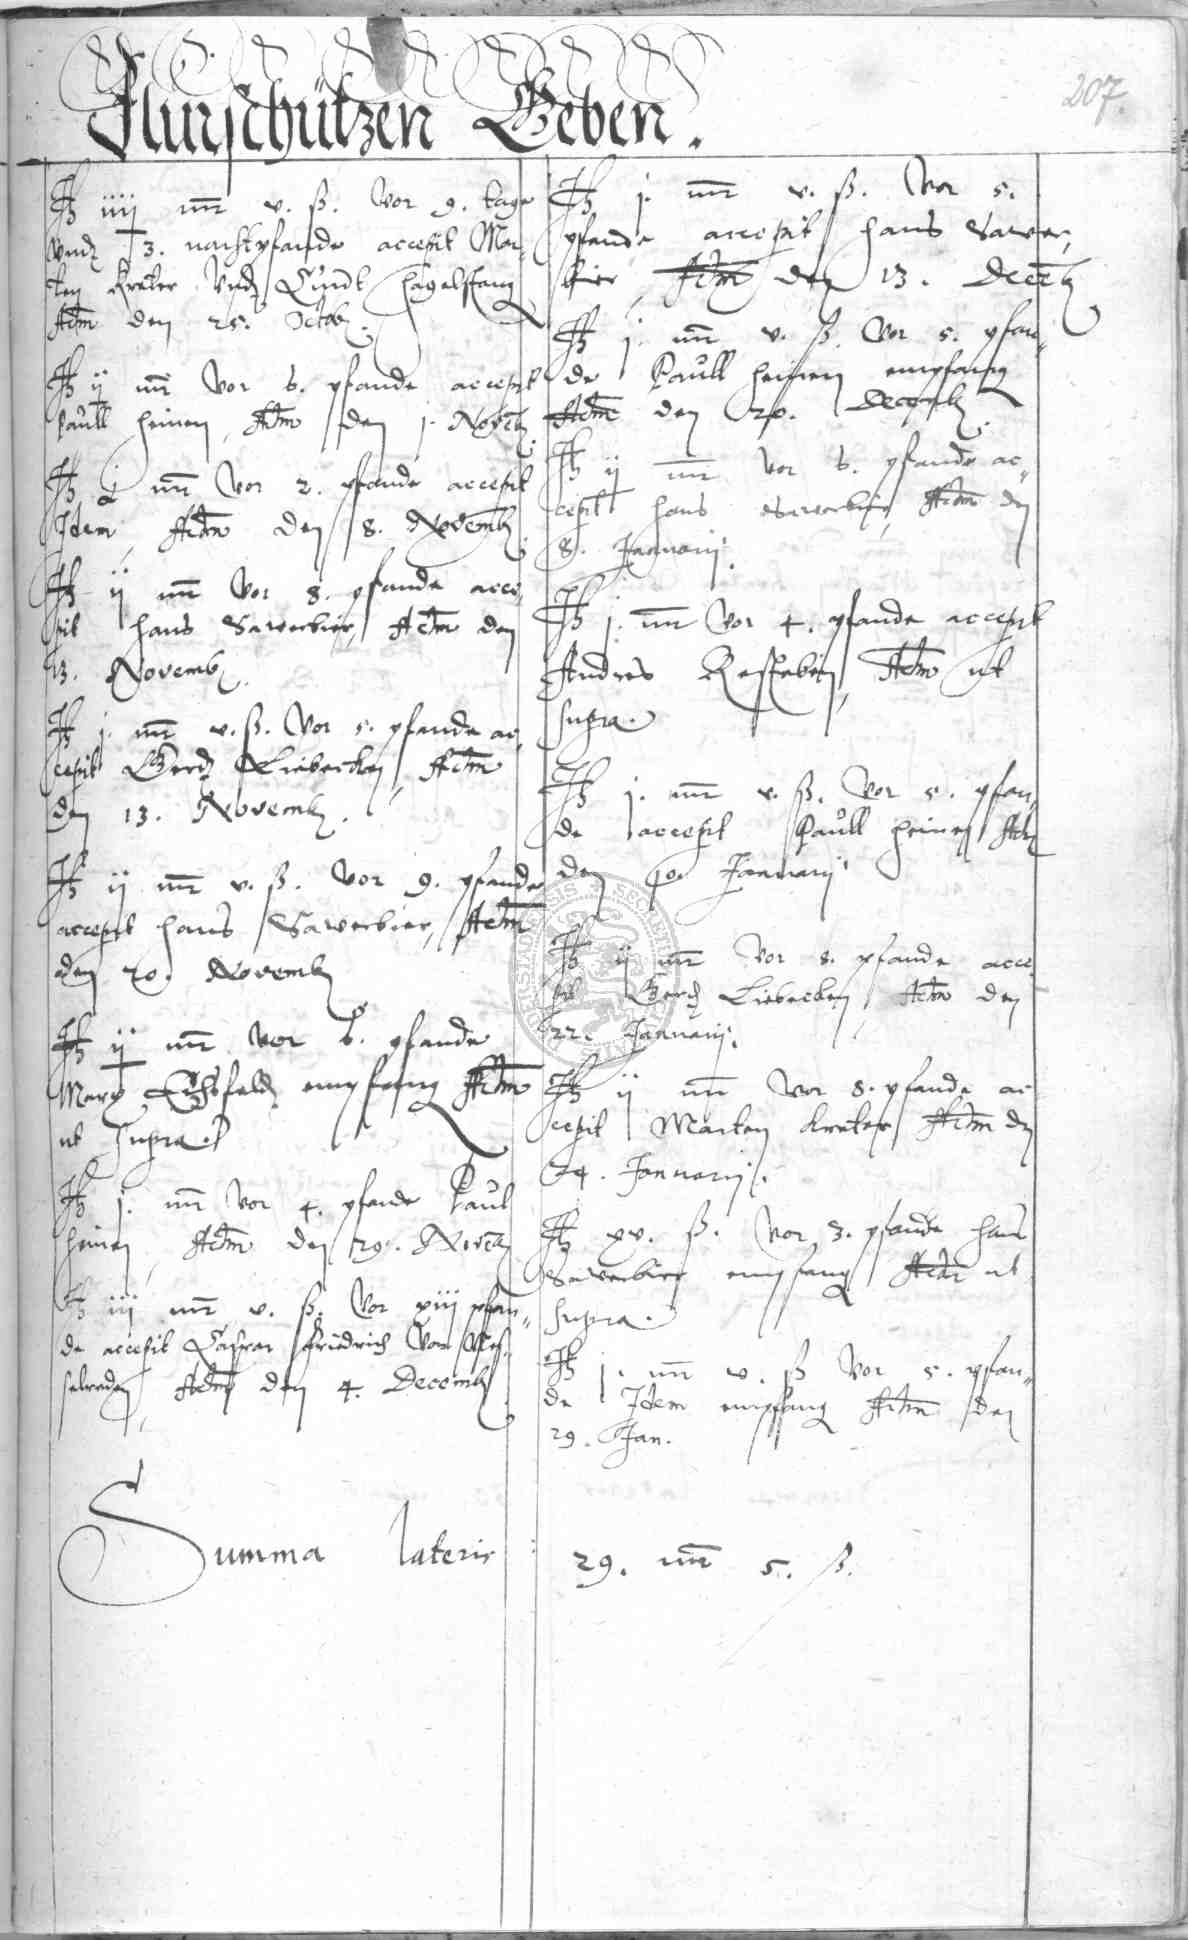 207.
Flurschützen Geben.
It iiii mr v. ß. Vor 9. tage
Vnd 3. nachtpfande accepit Mar-
ten Kreter Vnd Cundt Hagelstang
Actm den 25. Octob.
It ij mr Vor 6. pfande accepit
Paull heinen, Actm den j. Novemb
It j mr Vor 2. pfande accepit
Idem, Actm den 8. Novemb
It ij mr Vor 8. pfande acce-
pit Hans Sawerbier, Actm den
13. Novemb.
It j. mr v. ß. Vor 5. pfande ac-
cepit Gerd Liebecken, Actm
den 13. Novemb.
It ij mr v. ß. Vor 9. pfande
accepit Hans Sawerbier, Actm
den 20. Novemb
It ij mr Vor 6. pfande
Marx empfang Actm
ut supra.
It j. mr Vor 4. pfande Paul
heinen, Actm den 29. Novem
It iij mr v. ß. Vor xiij pfan-
de accepit Caspar Friedrich Von
Actm den 4. Decemb
It j. mr v. ß. Vor 5.
pfande accepit Hans Sawer-
bier, Actm den 13. Decem
It j. mr v. ß. Vor 5. pfan-
de Paull heinen empfang
Actm den 20. Decemb.
It ij mr Vor 6. pfande ac-
cepit Hans Sawerbier, Actm den
8. Januarij.
It j. mr Vor 4. pfande accepit
Andres Actm ut
supra.
It j. mr v. ß. Vor 5. pfan-
de accepit Paull heinen Actm
den 10. Januarij
It ij mr Vor 8. pfande acce-
pit Gerd Liebecken, Actm den
22. Januarij.
It ij mr Vor 8. pfande ac-
cepit Marten Kreter Actm den
24. Januarij.
It xv. ß. Vor 3. pfande Hans
Sawerbier empfang Actm ut
supra.
It j. mr v. ß Vor 5. pfan-
de Idem empfang Actm den
29. Jan.
Summa lateris : 29. mr 5. ß.